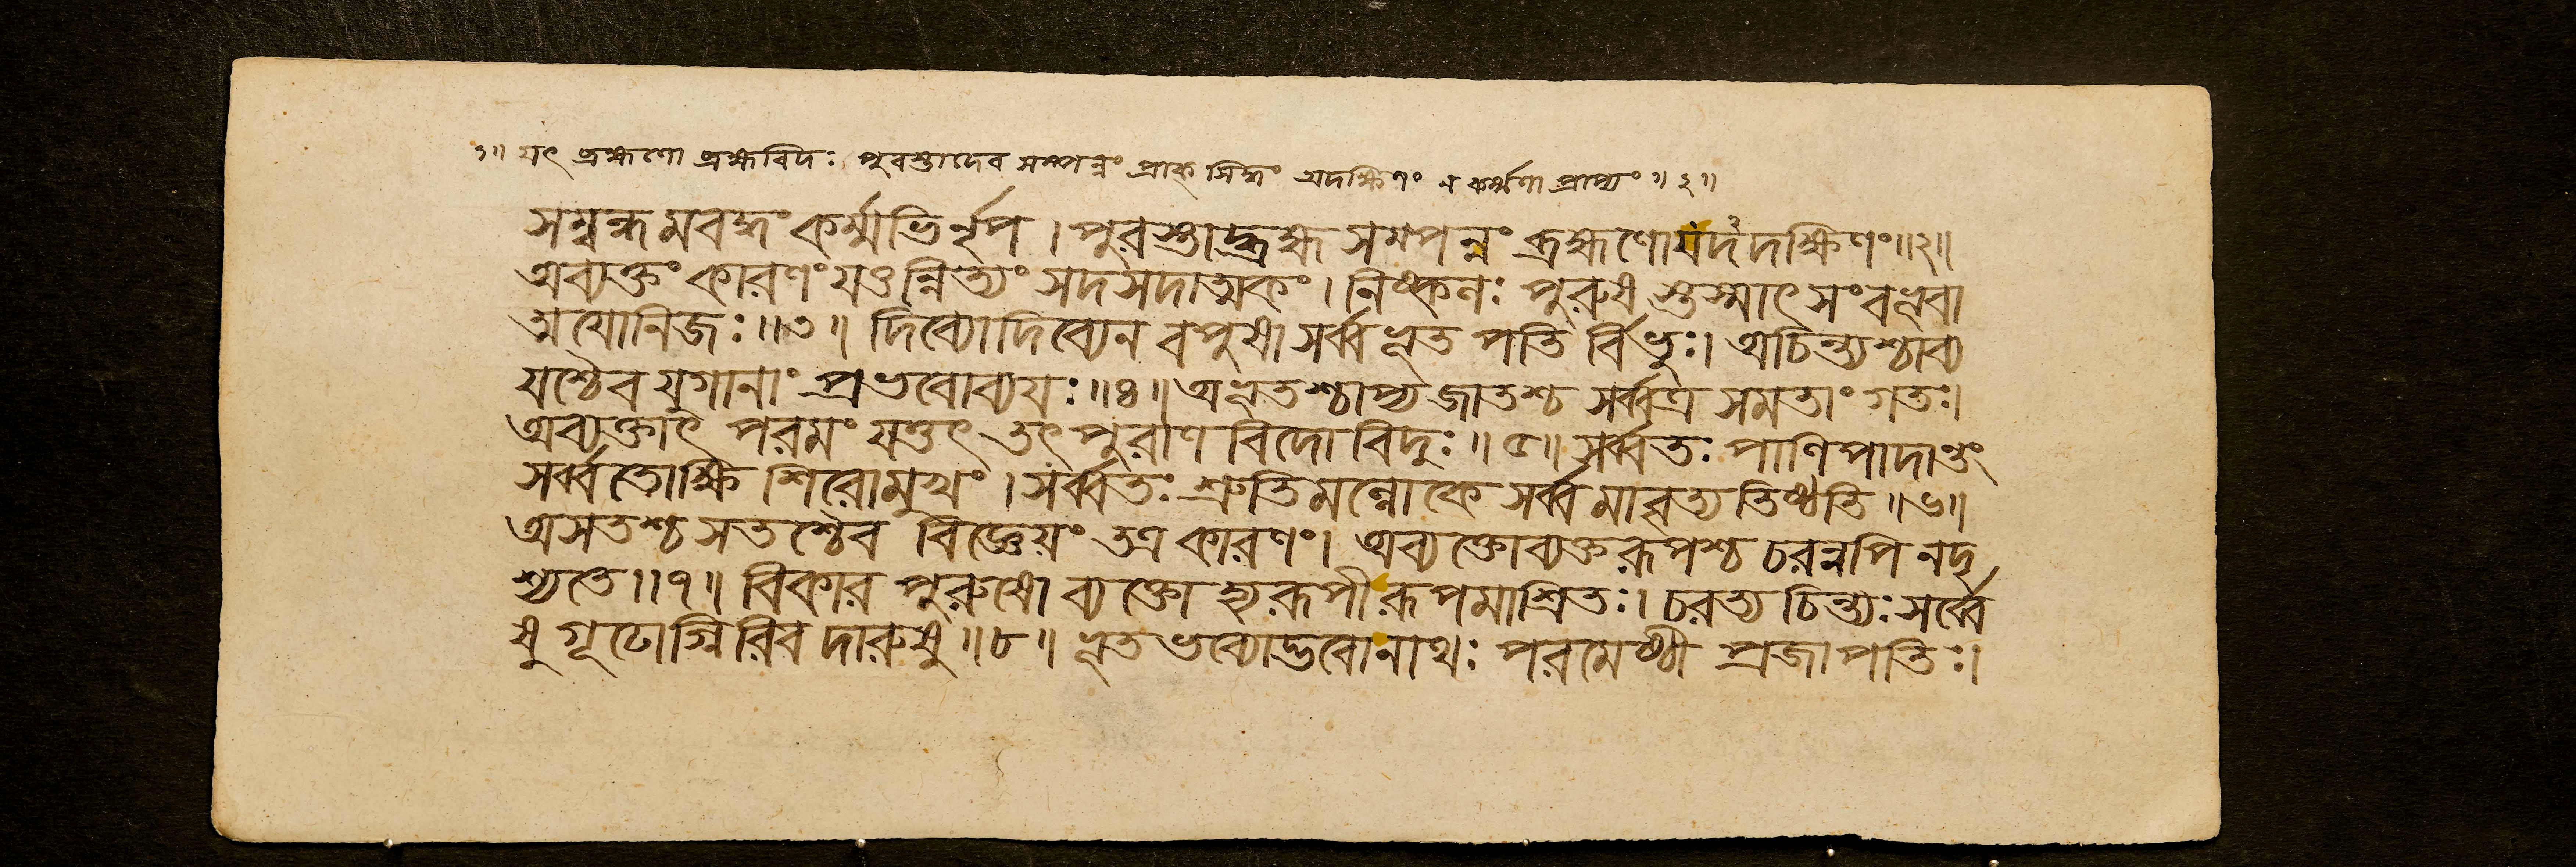 ১॥ যৎ ব্রহ্মণো ব্রহ্মবিদঃ পুরস্তাদেব সম্পন্নং প্রাক্ সিদ্ধং অদক্ষিণং ন কর্ম্মণা প্রাপ্যং ॥২॥
সম্বন্ধমবদ্ধং কর্ম্মভির্নৃপ । পুরস্তাদ্ব্রহ্ম সম্পন্নং ব্রহ্মণোযদদক্ষিণং॥২॥
অব্যক্তং কারণং যত্তন্নিত্যং সদসদাত্মকং । নিষ্কলঃ পুরুষ স্তস্মাৎ সংবভূবা
ত্মযোনিজঃ ॥৩॥ দিব্যোদিব্যেন বপুষা সর্ব্বভূত পতি র্বিভুঃ। অচিন্ত্যশ্চাব্য
যশ্চৈব যুগানাং প্রভবোব্যযঃ ॥৪॥ অভূতশ্চাপ্য জাতশ্চ সর্ব্বত্র সমতাং গতঃ।
অব্যক্তাৎ পরমং যত্তৎ তৎ পুরাণ বিদো বিদুঃ ॥৫॥ সর্ব্বতঃ পাণিপাদান্তং
সর্ব্বতোক্ষি শিরোমুখং । সর্ব্বতঃ শ্রুতিমল্লোকে সর্ব্বমাবৃত্য তিষ্ঠতি ॥৬॥
অসতশ্চ সতশ্চৈব বিজ্ঞেয়ং তত্র কারণং। অব্যক্তোব্যক্তরূপশ্চ চরন্নপি নদৃ
শ্যতে ॥৭॥ বিকার পুরুষো ব্যক্তো হ্যরূপী রূপমাশ্রিতঃ। চরত্য চিন্ত্যঃ সর্ব্বে
ষু গূঢোগ্নিরিব দারুষু ॥৮॥ ভূত ভব্যোদ্ভবোনাথঃ পরমেষ্ঠী প্রজাপতিঃ।